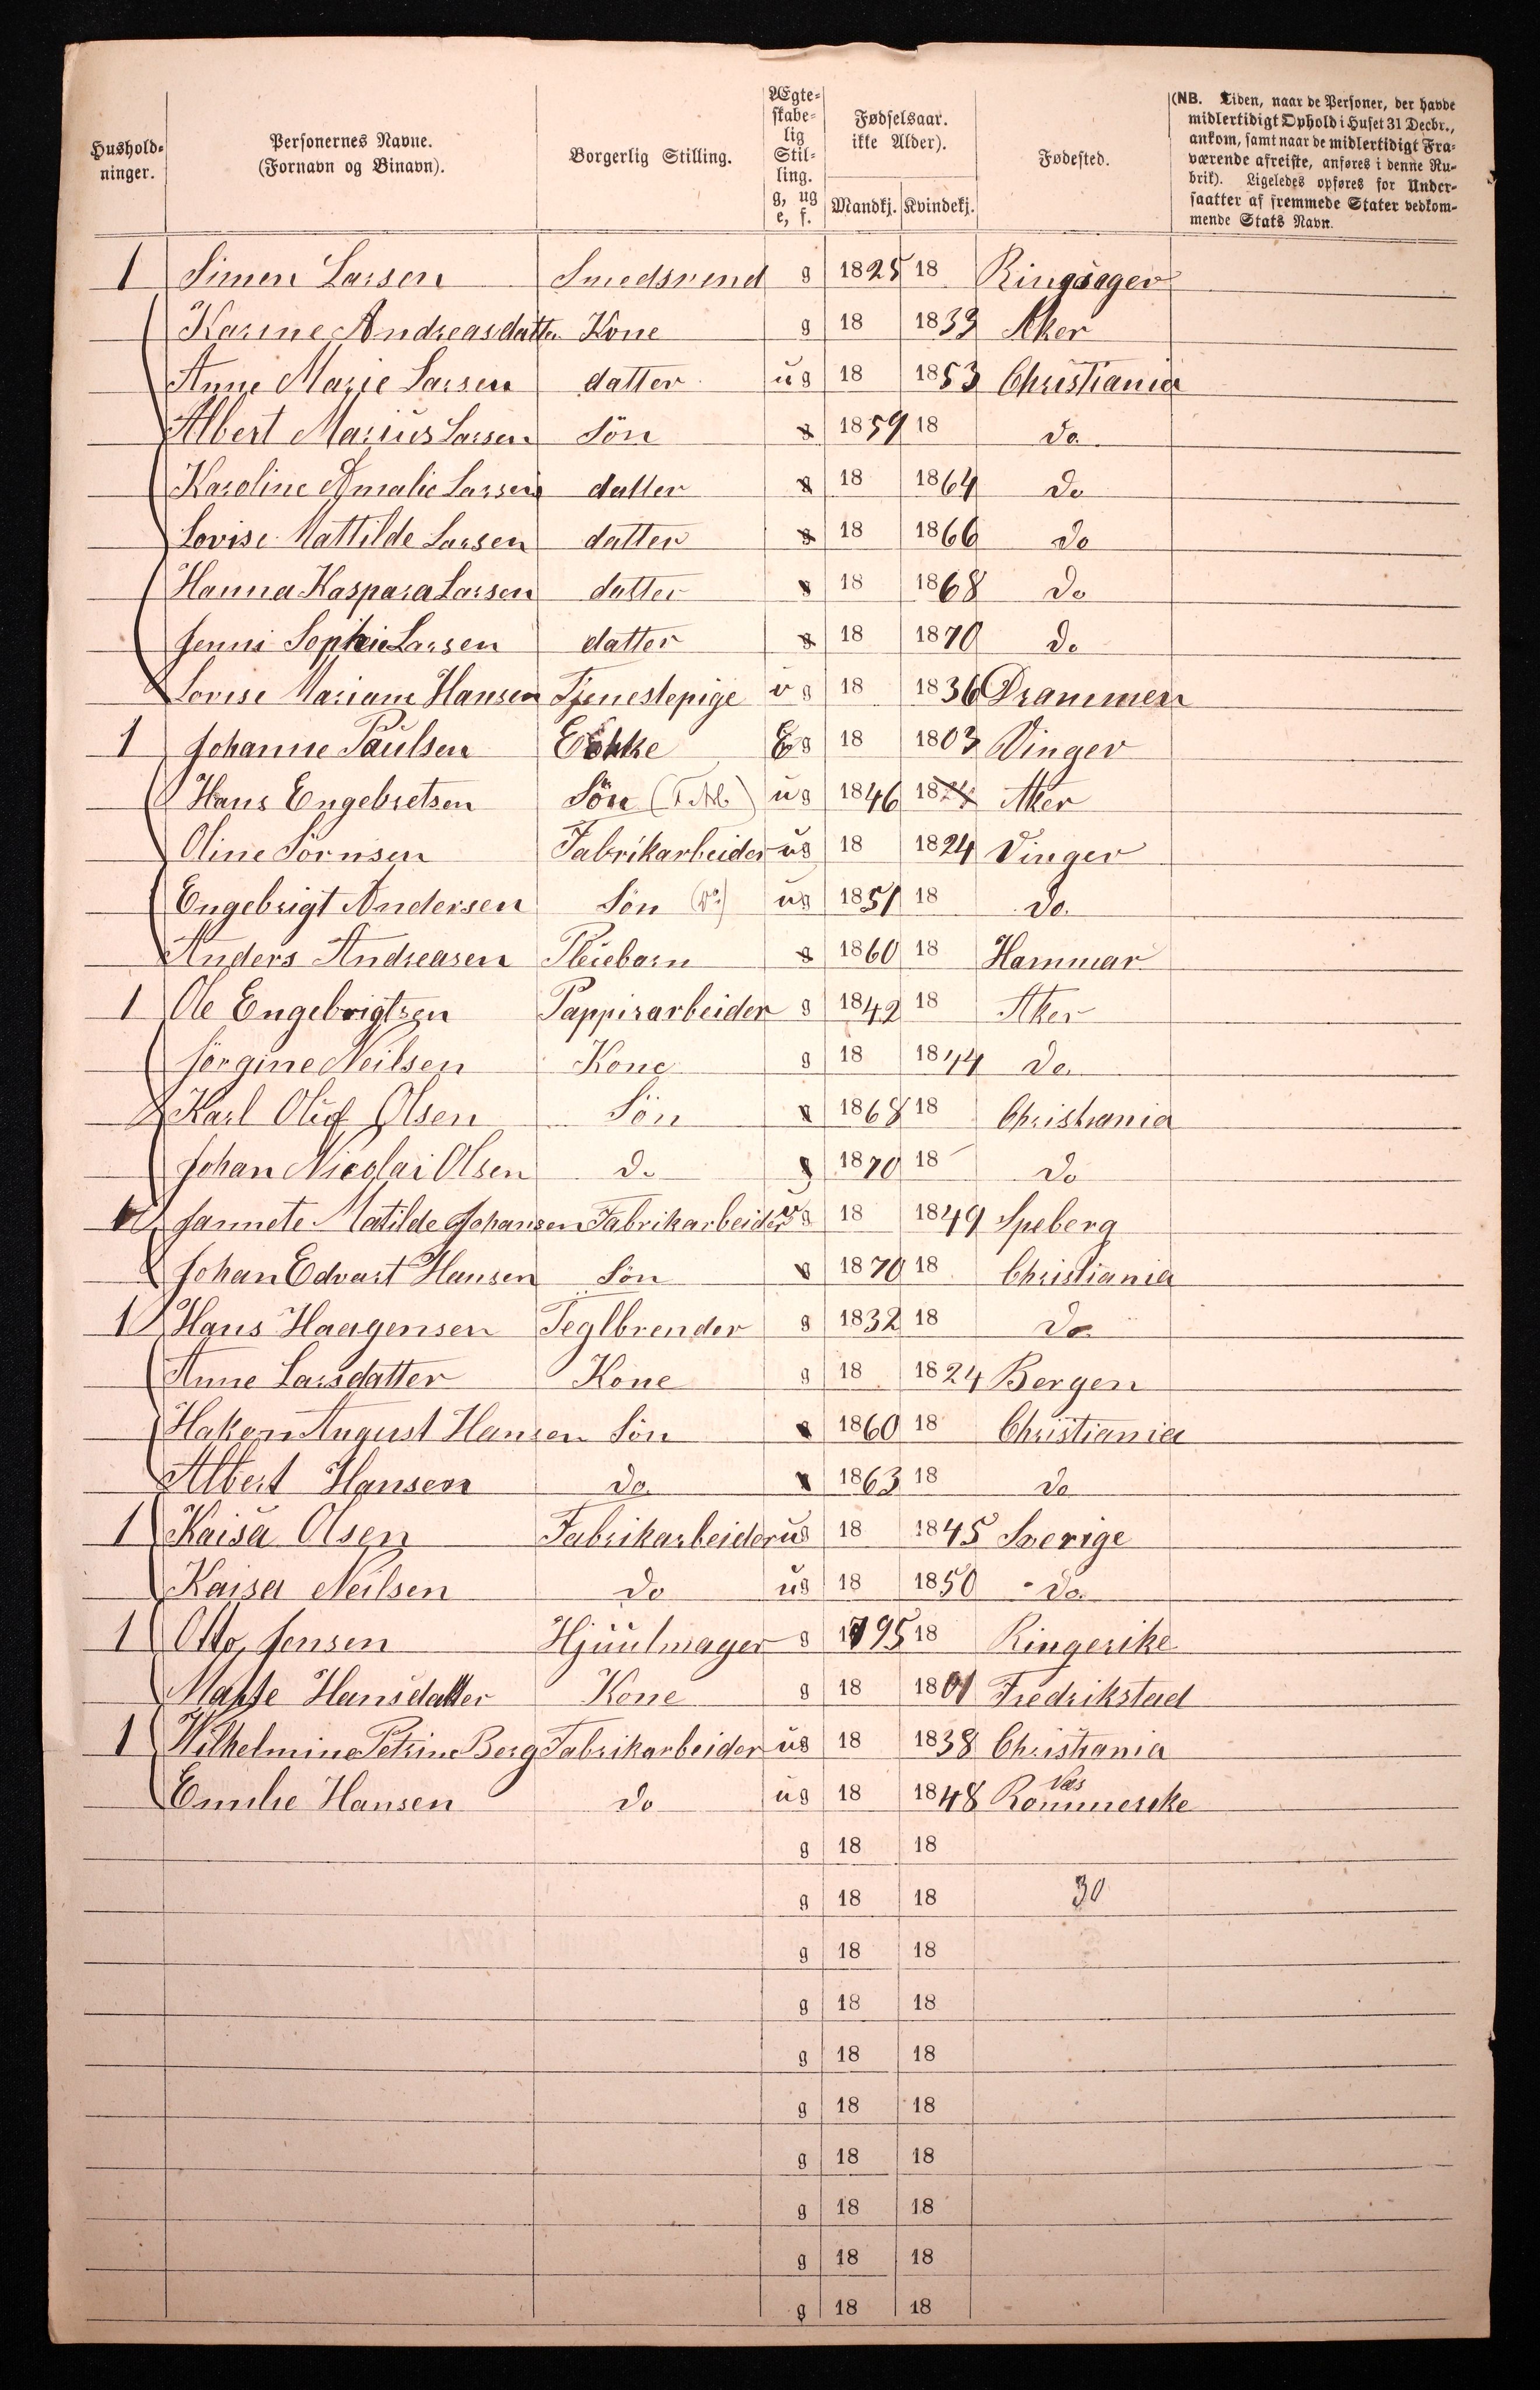 Hushold-
ninger.
Personernes Navne.
(Fornavn og Binavn).
Borgerlig Stilling.
Ægte-
skabe-
lig
Stil-
ling.
g, ug
e, f.
Fødselsaar.
ikke Alder).
Mandkj. Kvindekj.
Fødested.
(NB. Tiden, naar de Personer, der havde
midlertidigt Ophold i Huset 31 Decbr.,
ankom, samt naar de midlertidigt Fra-
værende afreiste, anføres i denne Ru-
brik). Ligeledes opføres for Under-
saatter af fremmede Stater vedkom-
mende Stats Navn.
1 Simen Larsen Smedsvend g 1825 18 Ringsager
Karine Andreasdatter Kone g 18 1833 Aker
Anne Marie Larsen datter ug 18 1853 Christiania
Albert Marius Larsen Sön g 1859 18 do
Karoline Amalie Larsen datter g 18 1864 do
Lovise Mattilde Larsen datter g 18 1866 do
Hanna Kaspara Larsen datter g 18 1868 do
Jenni Sophie Larsen datter g 18 1870 do
Lovise Mariane Hansen Tjenestepige ug 18 1836 Drammen
1 Johanne Paulsen Enke E g 18 1803 Vinger
Hans Engebretsen Sön ug 1846 1824 Aker
Oline Sörnsen Fabrikarbeider ug 18 1824 Vinger
Engebrigt Andersen Sön (do) ug 1851 18 do.
Anders Andreasen Pleiebarn g 1860 18 Hammar
1 Ole Engebrigtsen Pappirarbeider g 1842 18 Aker
Jörgine Neilsen Kone g 18 1844 do.
Karl Oluf Olsen Sön g 1868 18 Christiania
Johan Nicolai Olsen do g 1870 18 do
1 Jannete Matilde Johansen Fabrikarbeider ug 18 1849 Speberg
Johan Edvart Hansen Sön g 1870 18 Christiania
1 Hans Haagensen Teglbrender g 1832 18 do
Anne Larsdatter Kone g 18 1824 Bergen
Hakon August Hansen Sön g 1860 18 Christiania
Albert Hansen do g 1863 18 do
1 Kaisa Olsen Fabrikarbeider ug 18 1845 Sverige
Kaisa Neilsen do ug 18 1850 do.
1 Otto Jensen Hjuulmager g 1795 18 Ringerike
Marte Hansdatter Kone g 18 1801 Fredrikstad
1 Wilhelmine Petrine Berg Fabrikarbeider ug 18 1838 Christiania
Emilie Hansen do ug 18 1848 Næs Rommerike
g 18 18
g 18 18 30
g 18 18
g 18 18
g 18 18
g 18 18
g 18 18
g 18 18
g 18 18
g 18 18